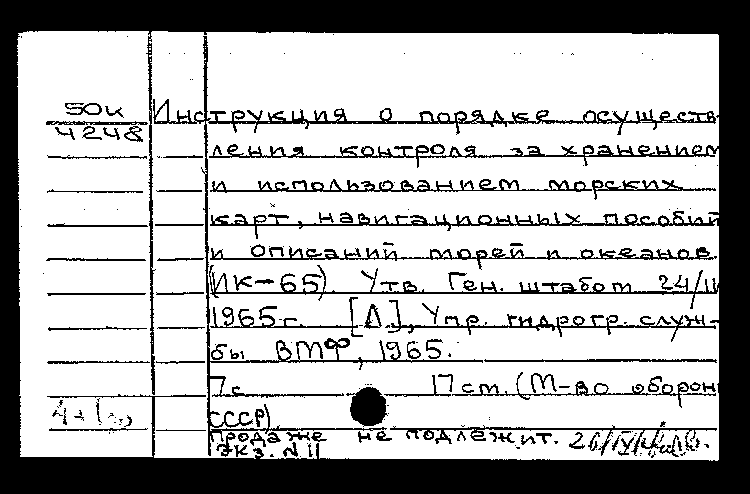 50к
4248
Инструкция о порядке осуществ-
ления контроля за хранением
и использованием морских
карт, навигационных пособий
и описаний морей и океанов.
(ИК-65). Утв. Ген. штабом 24/II
1965г. [Л.], Упр. гидрогр. служ-
бы ВМФ, 1965.
7с. 17см. (М-во оборон
СССР)
Продаже не подлежит.
Экз. N 11